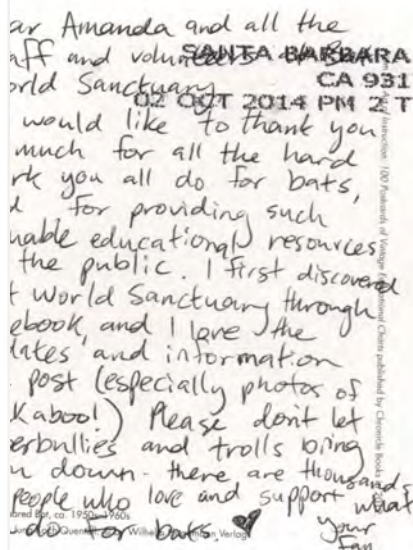 ar Amanda and all the
aff and volunteers
SANTA BARBARA
CA 931
orld Sanctuary
02 OCT 2014 PM 2 T
would like to thank you
much for all the hard
rk you all do for bats,
d for providing such
uable educational resources
the public. I first discovered
t World Sanctuary through
ebook, and I love the
dates and information
post (especially photos of
Kaboo!) Please don't let
erbullies and trolls bring
u down - there are thousands
people who love and support what
u do for bats. ♥
your
Fan
ared Bat, ca. 1950s–1960s
Instruction: 100 Postcards of Vintage Educational Charts published by Chronicle Books